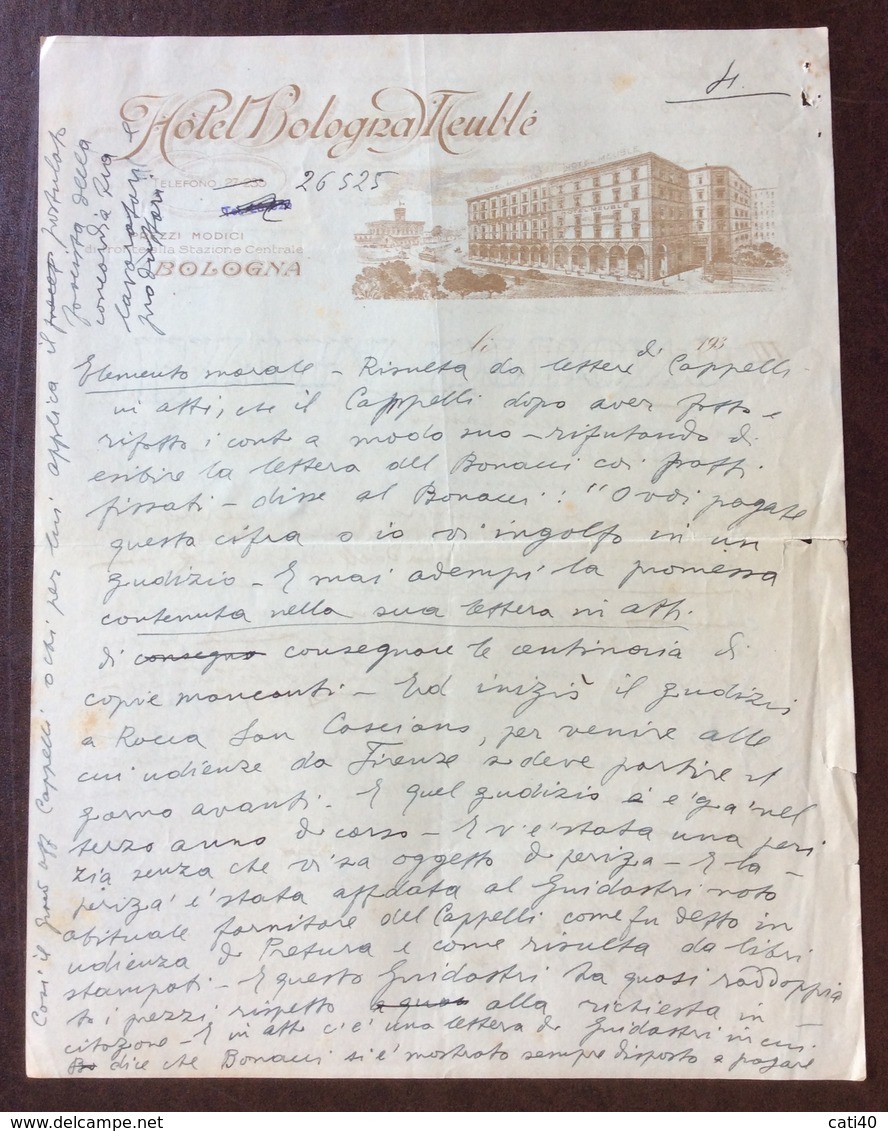 4.
Hôtel Bologna Meublé
TELEFONO 27-235
26525
PREZZI MODICI
di fronte alla Stazione Centrale
BOLOGNA
HOTEL MEUBLE
li 193
Elemento morale – Risulta da lettere di Cappelli
in atti, che il Cappelli dopo aver fatto e
rifatto i conti a modo suo – rifiutando di
esibire la lettera del Bonacci coi patti
fissati – disse al Bonacci: "O voi pagate
questa cifra o io vi ingolfo in un
giudizio – E mai adempì la promessa
contenuta nella sua lettera in atti.
di consegna consegnare le centinaia di
copie mancanti – Ed iniziò il giudizio
a Rocca San Casciano, per venire alle
cui udienze da Firenze si deve partire il
giorno avanti. E quel giudizio è già nel
terzo anno di corso – E v'è stata una peri
zia senza che vi sia oggetto di perizia – E la
perizia è stata affidata al Guidastri noto
abituale fornitore del Cappelli come fu detto in
udienza di Pretura e come risulta da libri
stampati – E questo Guidastri ha quasi raddoppia
to i prezzi rispetto alla richiesta in
citazione – E in atti c'è una lettera di Guidastri in cui
dice che Bonacci si è mostrato sempre disposto a pagare
Così il Cappelli applica il postulato
fascista della
concordia fra
lavoratori e
produttori
cati40